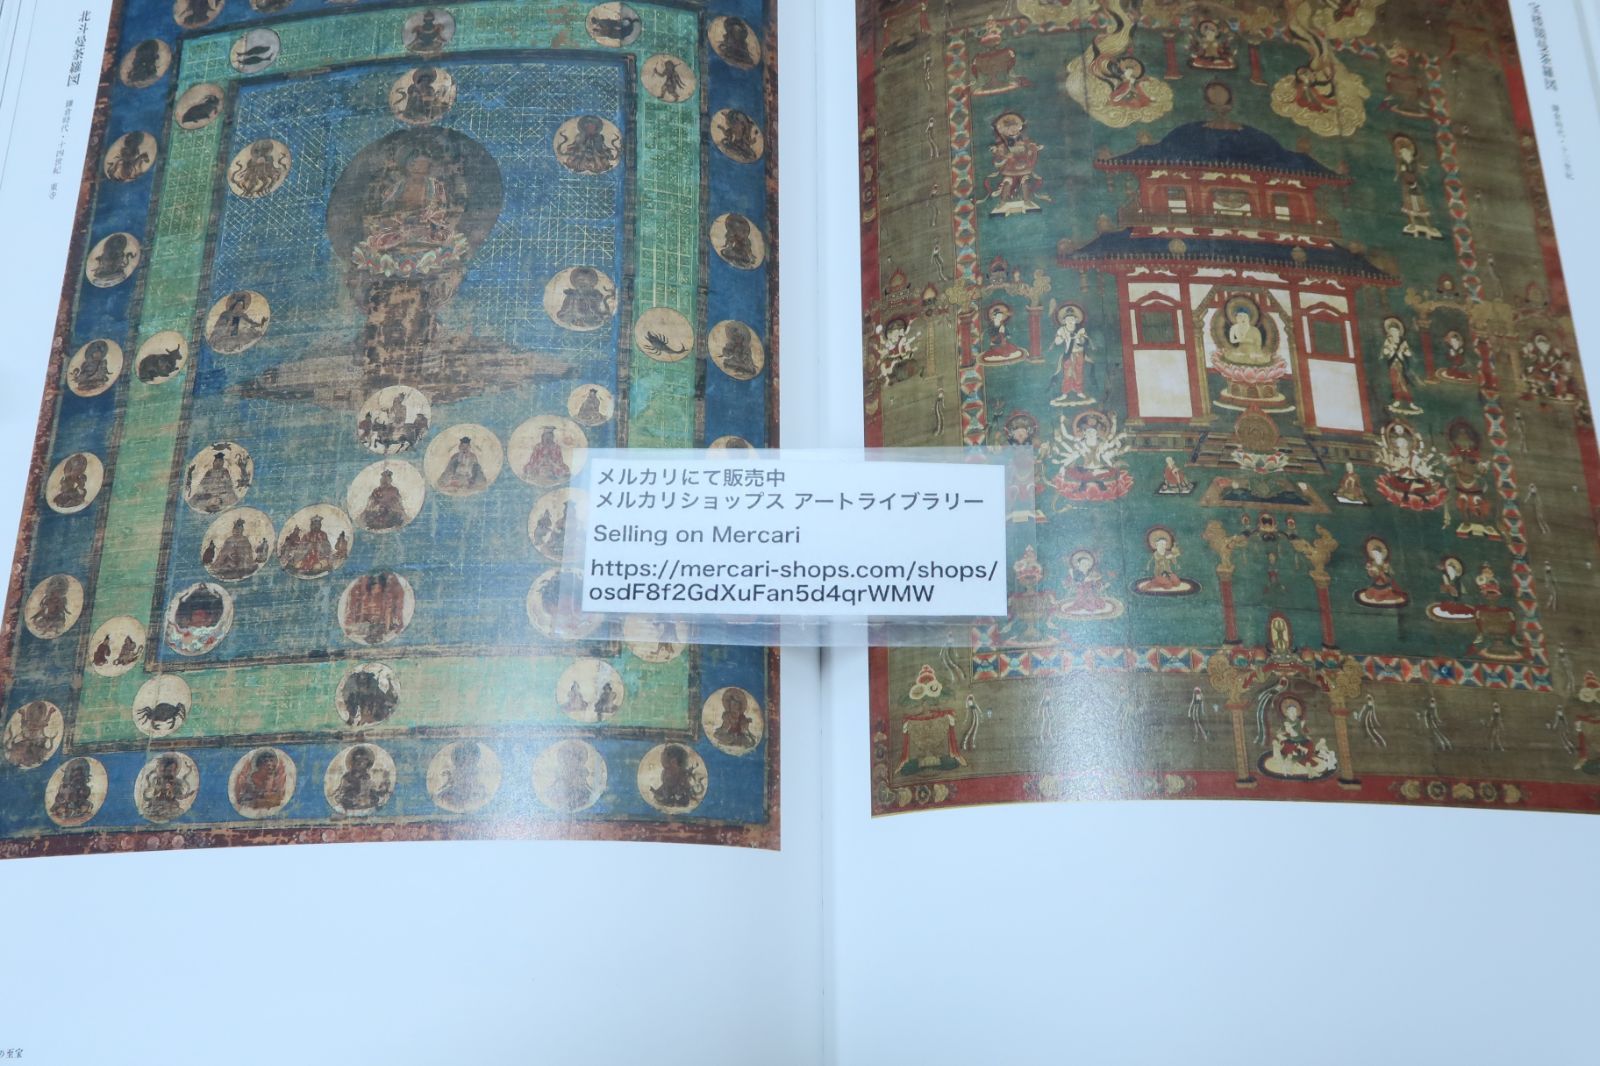 北斗曼荼羅図
鎌倉時代・十四世紀
メルカリにて販売中
メルカリショップス アートライブラリー
Selling on Mercari
https://mercari-shops.com/shops/
osdF8f2GdXuFan5d4qrWMW
の至宝